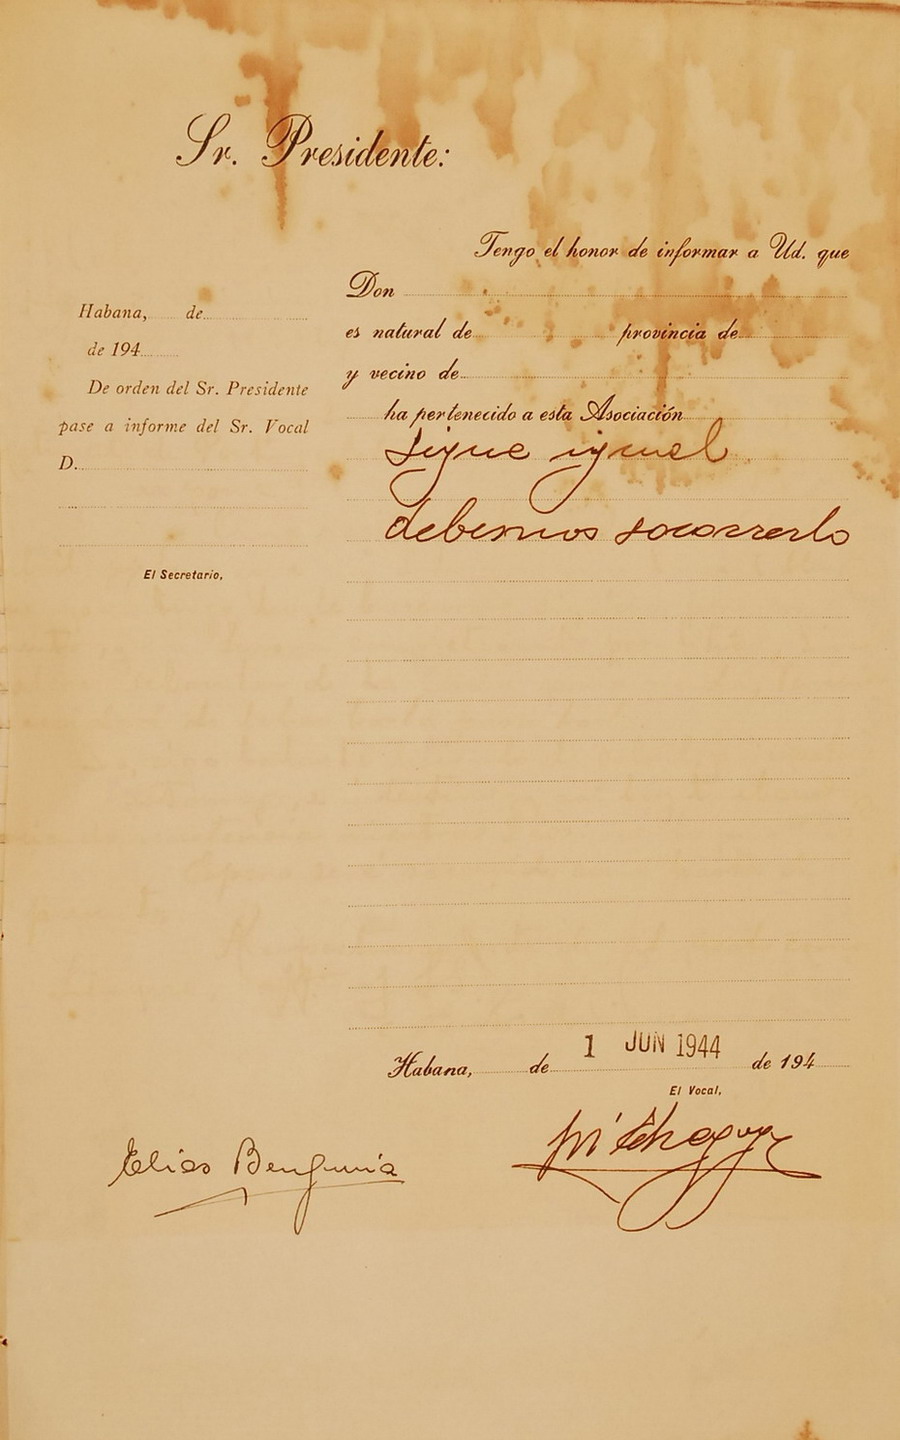 Sr. Presidente:
Tengo el honor de informar a Ud. que
Don
es natural de provincia de
y vecino de
ha pertenecido a esta Asociación
Sigue igual
debemos socorrerlo
Habana, de
de 194
De orden del Sr. Presidente
pase a informe del Sr. Vocal
D.
El Secretario,
Habana, de 1 JUN 1944 de 194
El Vocal,
Elias